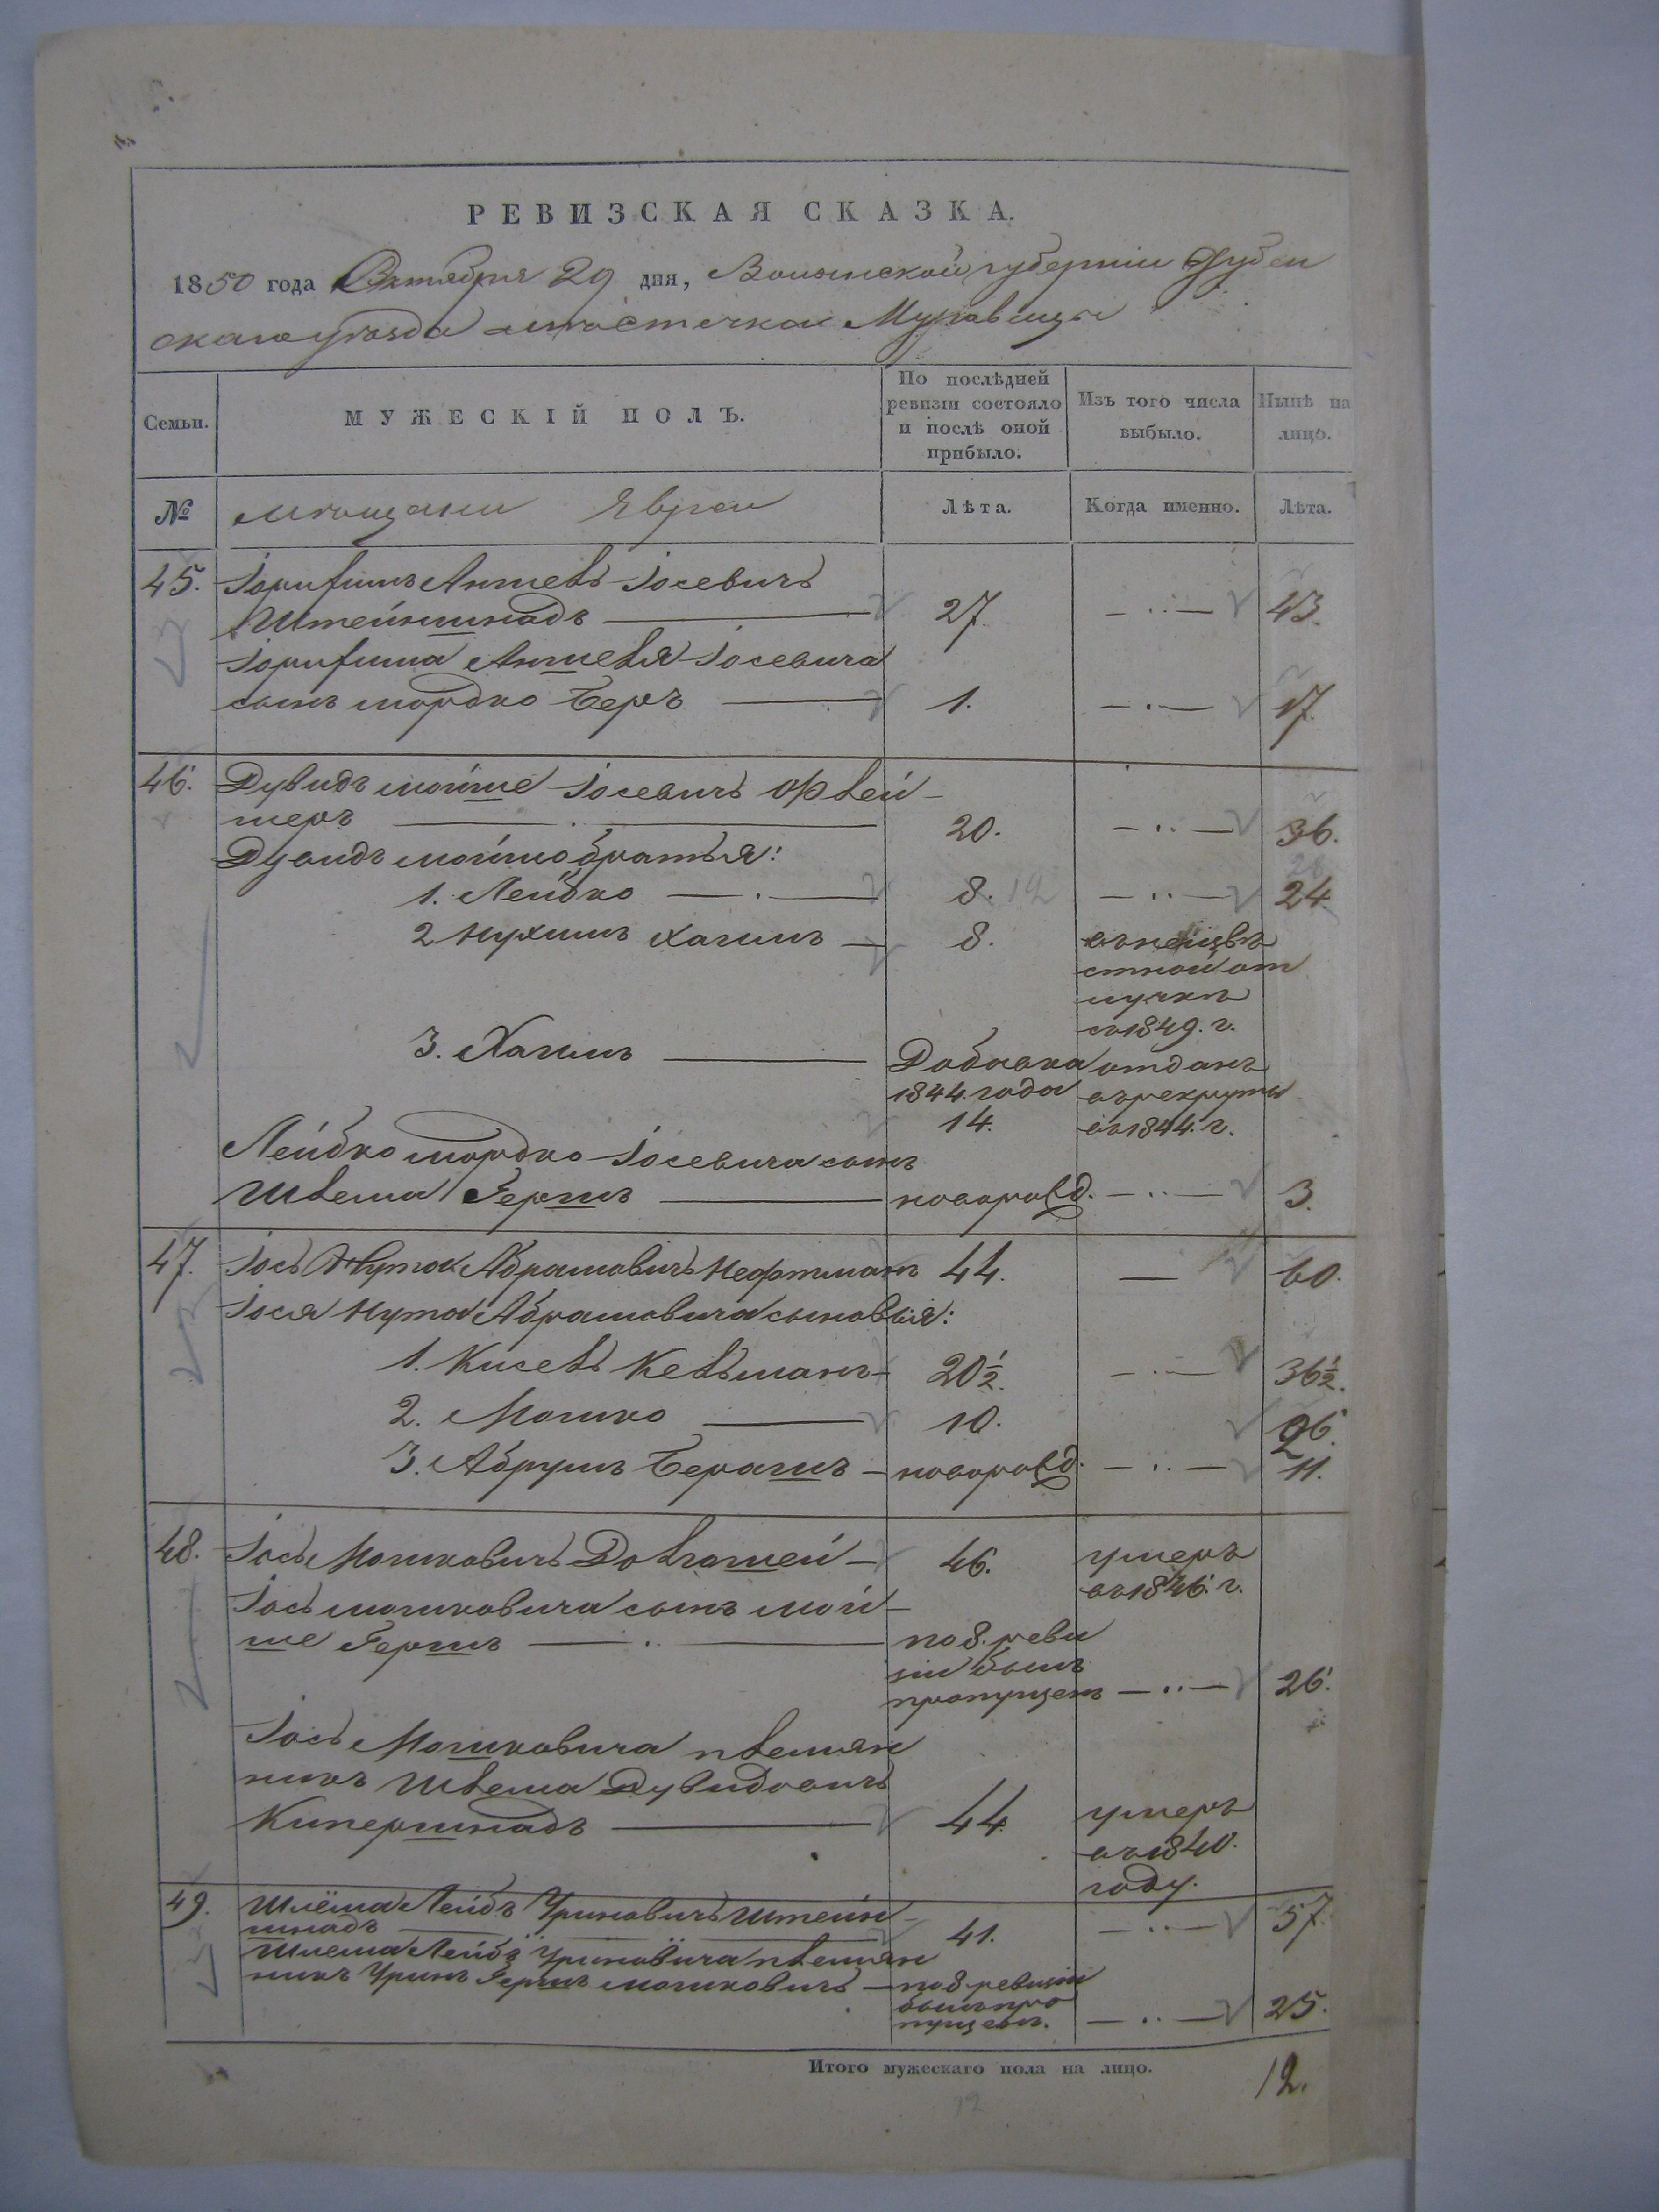 РЕВИЗСКАЯ СКАЗКА.
1850 года Октября 29 дня, Волынской губернии Дубен
скаго уѣзда мѣстечка Муравицы
Семьи.
МУЖЕСКІЙ ПОЛЪ.
По послѣдней ревизіи состояло и послѣ оной прибыло.
Изъ того числа выбыло.
Нынѣ на лицо.
№ мѣщани Явреи Лѣта. Когда именно. Лѣта.
45. Аншель Іосевичъ
Штейншнадъ 27. — ·· — 43.
Аншеля Іосевича
сынъ мордко Беръ 1. — · — 17.
46. Дувидъ мойше Іосевичъ Орлей-
меръ 20. — ·· — 36.
Дувидъ мойше братья:
1. Лейбко — · — 8. 12 — ·· — 24.
2 Нухимъ Хаимъ — 8. въ неизвѣ
стной от
лучкѣ
съ 1849. г.
3. Хаимъ Добавка отданъ
1844. года въ рекруты
14. въ 1844. г.
Лейбко мордко Іосевича сынъ
Шлема Гершъ новорожд. — ·· — 3.
47. Іось Нута Абрамовичъ Нефтманъ 44. — 60.
Іося Нута Абрамовича сыновья:
1. Кисель Кельманъ 20½. — · — 36½.
2. Мошко 10. 26.
3. Абрумъ Берашъ — новорожд. — ·· — 11.
48. Іось Мошковичъ 46. умеръ
въ 1846. г.
Іось мошковича сынъ мой-
ше Гершъ — ·· — по 8. реви
зіи былъ
пропущенъ — ·· — 26.
Іось Мошковича племян
никъ Шлема Дувидовичъ
Кипершнадъ 44. умеръ
въ 1840.
году.
49. Шлёма Лейбъ Уриновичъ Штейн-
шнадъ 41. — ·· — 57.
Шлема Лейбъ Уриновича племян
никъ Уринъ Гершъ мошковичъ — по 8 ревизіи
былъ про
пущенъ. — ·· — 25.
Итого мужескаго пола на лицо. 12.
12